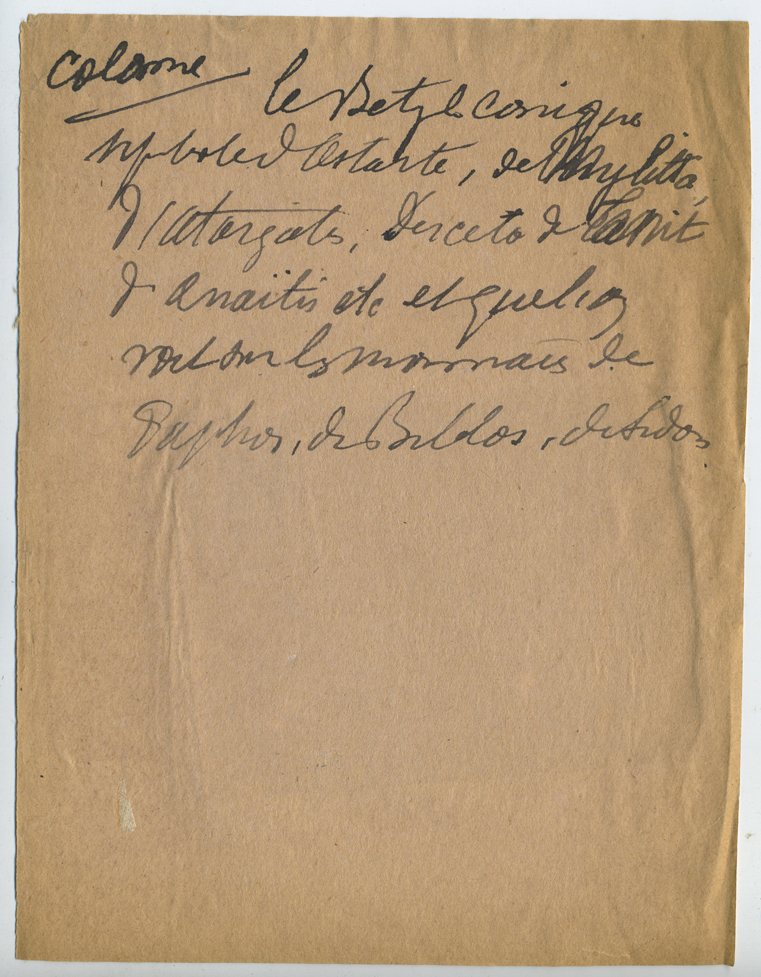 Colonne
le Betyle conique
symbole d'Astarte, de Mylitta,
d'Atargatis, Derceto de Tanit
d'Anaitis etc et que l'on
voit sur les monnaies de
Paphos, de Biblos, de Sidon